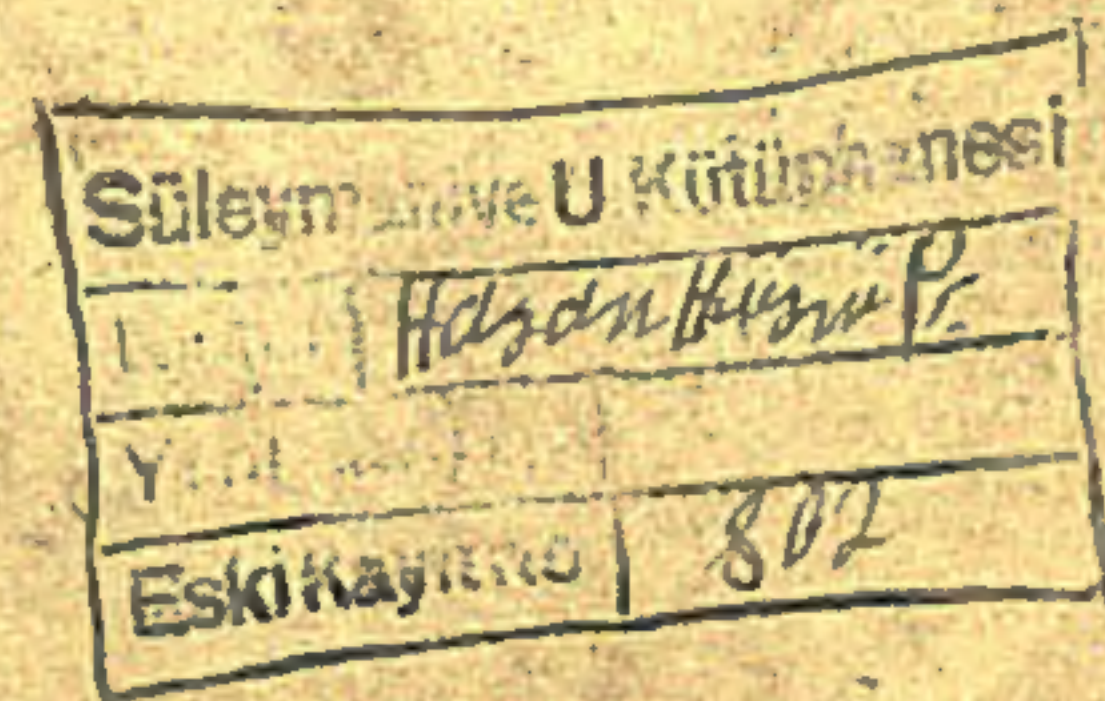 Süleymaniye U Kütüphanesi
Hasan Hüsnü P.
Y
Eski Kayıt No 802